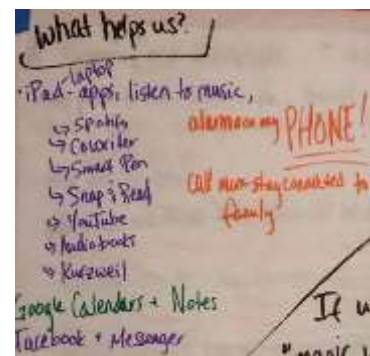 What helps us?
laptop
• iPad - apps, listen to music,
↳ Spotify
↳ Cowriter
↳ Smart Pen
↳ Snap & Read
↳ YouTube
↳ Audiobooks
↳ Kurzweil
alarms on my PHONE!
Call mum stay connected to
family
Google Calendars + Notes
Facebook + Messenger
If w
"magic w